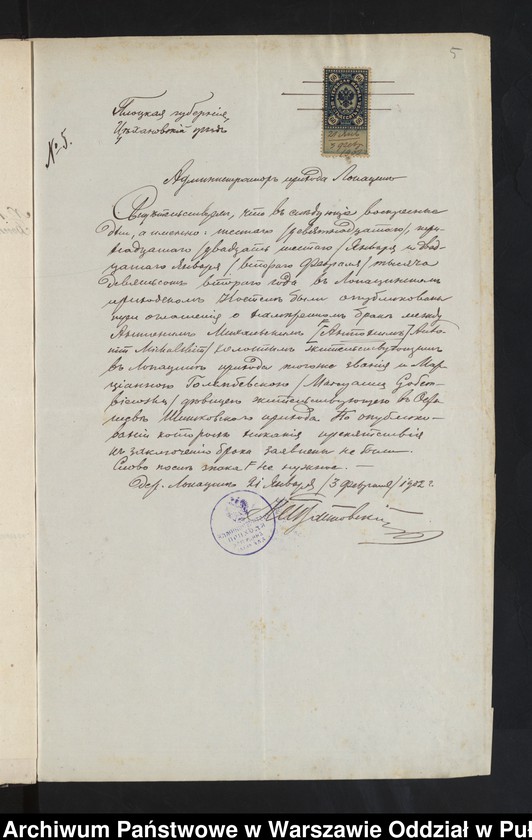 5
Плоцкая губернія
Цѣхановскій уѣздъ
№ 5.
21 Янв.
3 Февр.
1902
Администраторъ прихода Лопацинъ
Свидѣтельствуетъ, что въ слѣдующіе воскресные
дни, а именно: шестаго /девятнадцатаго/, три-
надцатаго /двадцать шестаго/ Января и двад-
цатаго Января /втораго Февраля/ тысяча
девятьсотъ втораго года въ Лопацинскомъ
приходскомъ Костелѣ были опубликованы
три оглашенія о намѣренномъ бракѣ между
Антонимъ Михальскимъ [Антонимъ] /Anto-
nim Michalskim/ холостымъ жительствующимъ
въ Лопацинѣ прихода того же званія и Мар-
ціанною
дѣвицею жительствующею въ
прихода. По опублико-
ваніи которыхъ никакія препятствія
къ заключенію брака заявлены не были.
Слово послѣ знака + не нужное. —
Дер. Лопацинъ 21 Января /3 Февраля/ 1902 г.
ПРИХОДА
Archiwum Państwowe w Warszawie Oddział w Puł